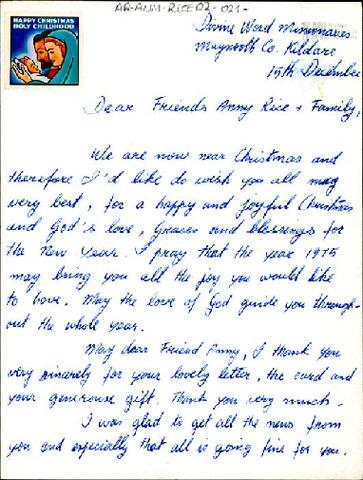 AR-ANM-RICE02-021-
HAPPY CHRISTMAS
HOLY CHILDHOOD
Divine Word Missionaries
Maynooth Co. Kildare
15th December
Dear Friends Anny Rice + Family,
We are now near Christmas and
therefore I'd like do wish you all may
very best, for a happy and joyful Christmas
and God's love, Graces and blessings for
the New Year. I pray that the year 1975
may bring you all the joy you would like
to have. May the love of God guide you through-
out the whole year.
May dear Friend Anny, I thank you
very sincerely for your lovely letter, the card and
your generouse gift. Thank you very much.
I was glad to get all the news from
you and especially that all is going fine for you.